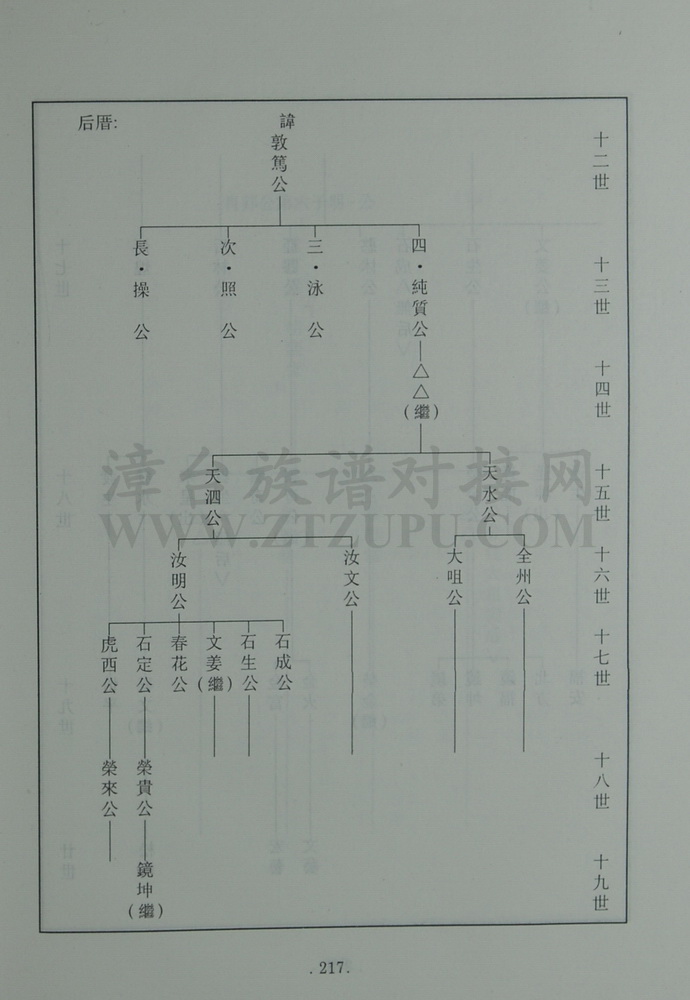 后厝:
諱敦篤公
十二世
四·純質公
三·泳公
次·照公
長·操公
十三世
△△(繼)
十四世
天水公
天泗公
十五世
全州公
大咀公
汝文公
汝明公
十六世
石成公
石生公
文姜(繼)
春花公
石定公
虎西公
十七世
榮貴公
榮來公
十八世
鏡坤(繼)
十九世
漳台族谱对接网
WWW.ZTZUPU.COM
.217.